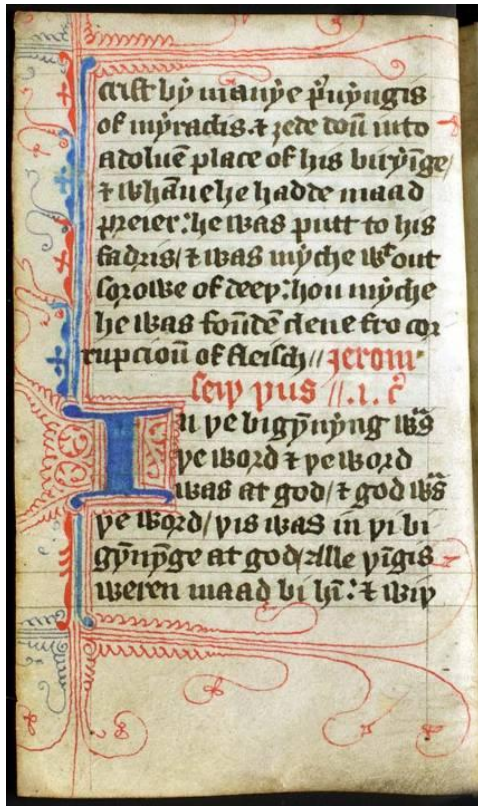 crist bẏ manẏe p̃uẏngis
of mẏraclis. ⁊ ȝede doū into
a doluē place of his birẏīge/
⁊ whāne he hadde maad
p̃eier: he was putt to his
fadris/ ⁊ was mẏche wͭ out
sorowe of deeþ: hou mẏche
he was foūdē clene fro cor
rupcioū of fleisch// Jerom
seiþ þus //.1. c̃
In þe bigẏ̄nẏng wᵃs
þe word ⁊ þe word
was at god/ ⁊ god wᵃs
þe word/ þis was in þi bi
gẏ̄nẏ̄ge at god/ Alle þīgis
weren maad bi hī: ⁊ wiþ